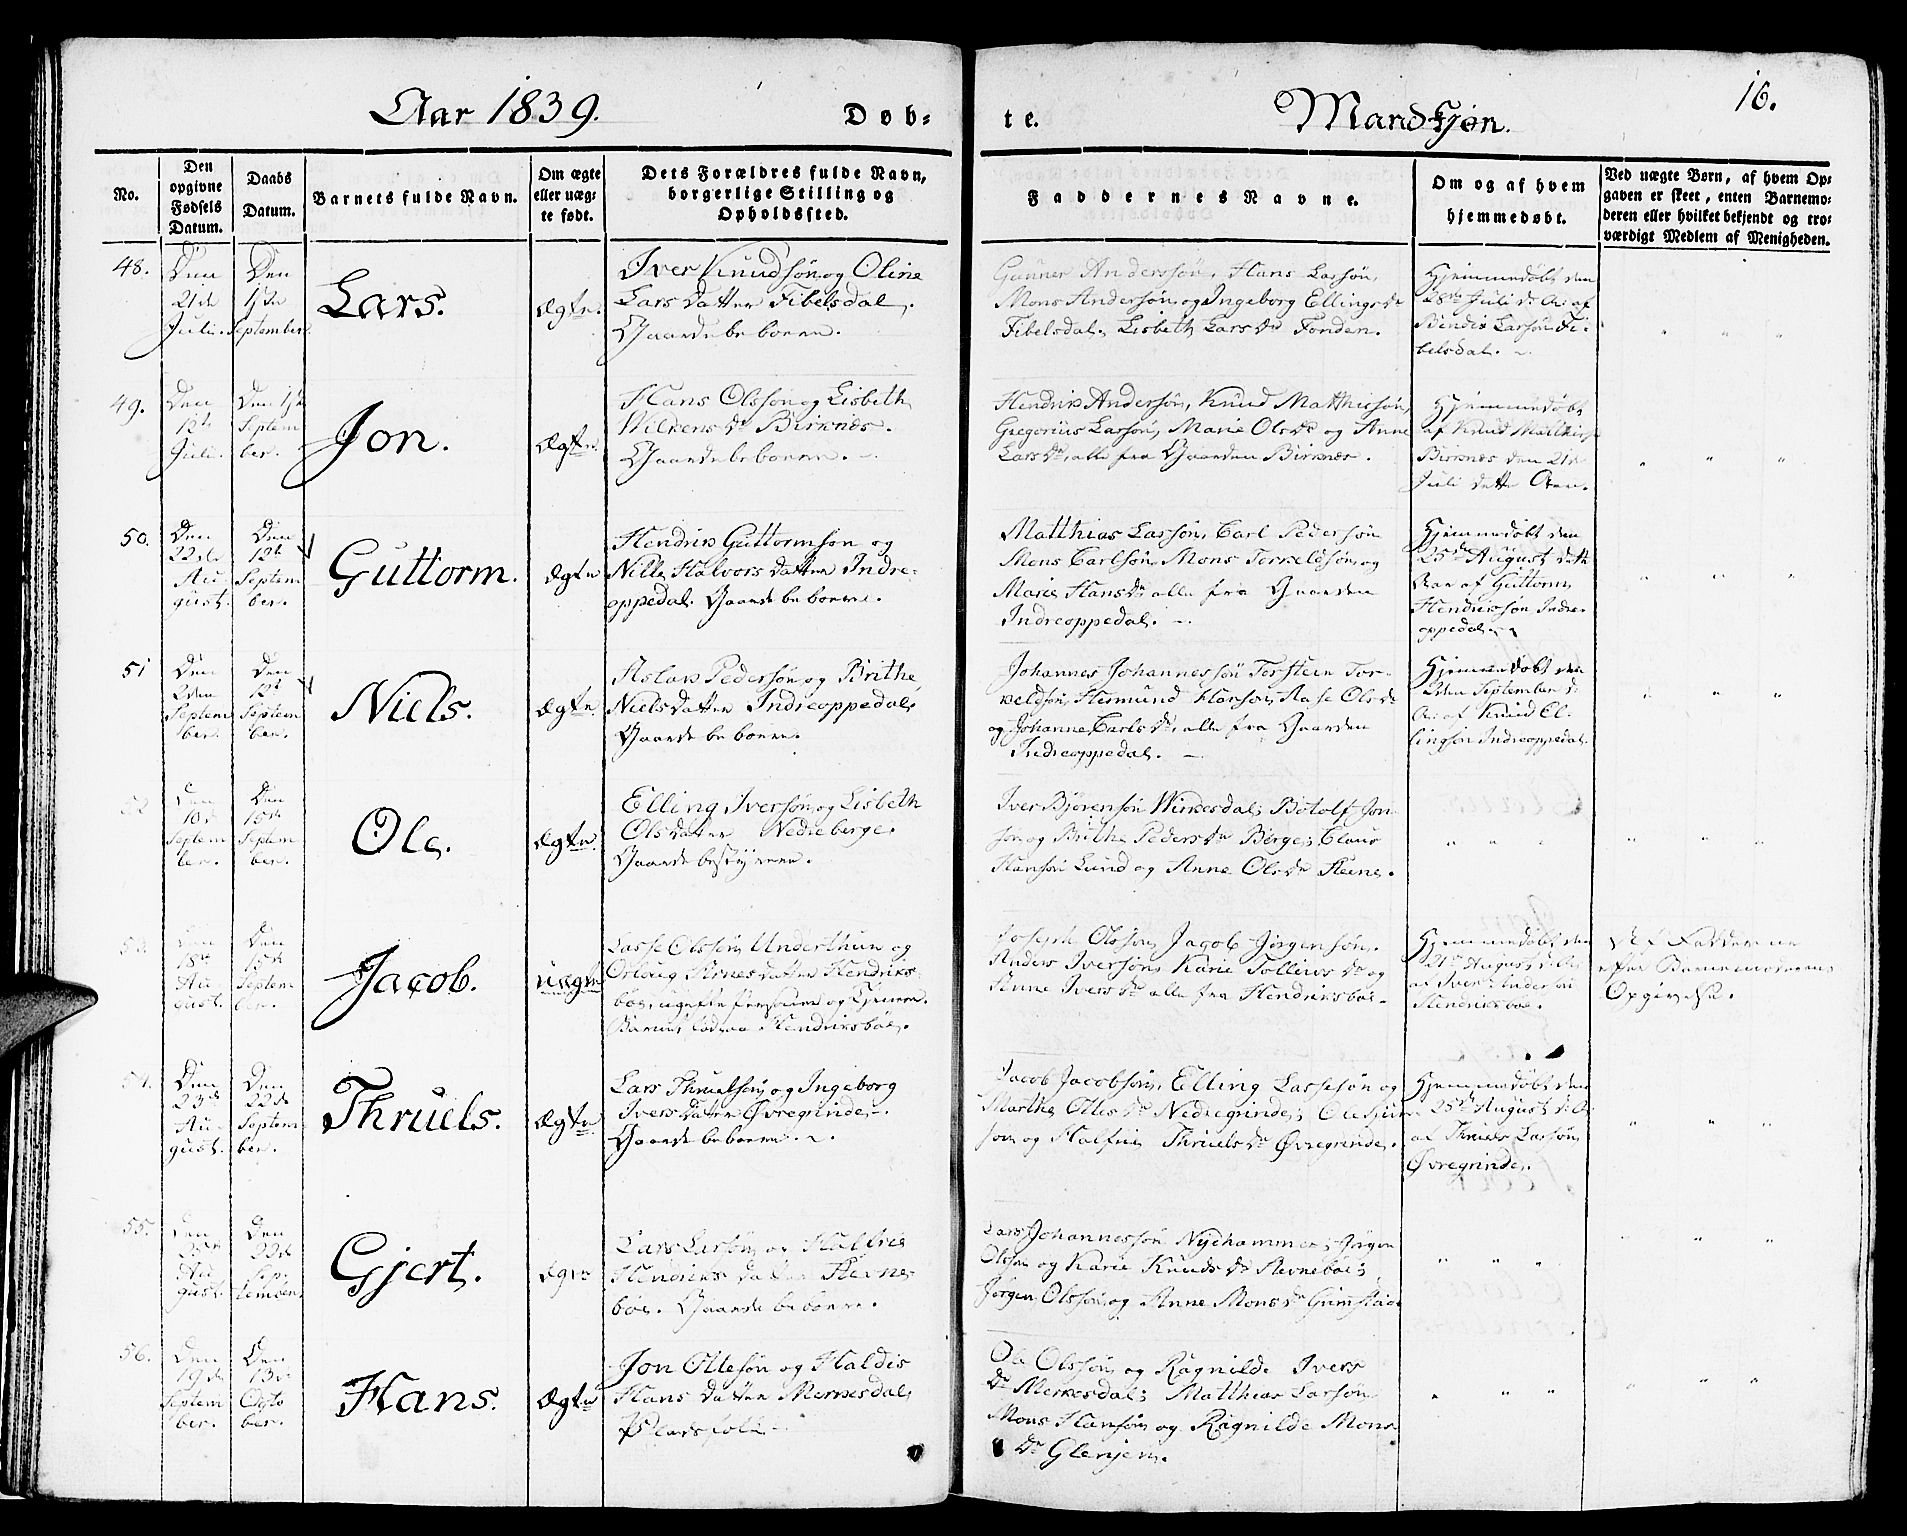 Aar 1839.
Døb-
te.
Mandkjøn.
16.
No.
Den opgivne Fødsels Datum.
Daabs Datum.
Barnets fulde Navn.
Om ægte eller uægte født.
Dets Forældres fulde Navn, borgerlige Stilling og Opholdssted.
Faddernes Navne.
Om og af hvem hjemmedøbt.
Ved uægte Børn, af hvem Opgaven er skeet, enten Barnemoderen eller hvilket bekjendt og troværdigt Medlem af Menigheden.
48.
Den
21de
Juli.
Den
1ste
September.
Lars.
Ægte.
Iver Knudsøn og Oline
Larsdatter Fibelsdal,
Gaardebeboere.
Gunner Anderssøn, Hans Larssøn,
Mons Andersøn og Ingeborg Ellingsdr
Fibelsdal; Lisbeth Larsdr Fonden.
Hjemmedøbt den
28de Juli d. A. af
Bendix Larsøn Fi-
belsdal.
49.
Den
Juli.
Den 1ste
Septem
ber.
Jon.
Ægte.
Hans Olssøn og Lisbeth
Wilkensdr Birknes.
Gaardebeboere.
Hendrik Andersøn, Knud Matthissøn,
Gregorius Larsøn, Marie Olsdr og Anne
Larsdr, alle fra Gaarden Birknes.
Hjemmedøbt
af Knud Matthiess
Birknes den 21de
Juli dette Aar.
50.
Den
22de
Au-
gust.
Den
Septem
ber.
Guttorm.
Ægte
Hendrik Guttormson og
Nille Halvorsdatter Indre-
oppedal. Gaardebeboere.
Matthias Larsøn, Carl Pedersøn
Mons Carlsøn, Mons Torkeldsøn og
Marie Hansdr alle fra Gaarden
Indreoppedal.
Hjemmedøbt den
25de August dette
Aar af Guttorm
Hendriksøn Indre-
oppedal.
51
Den
2den
Septem
ber.
Den
Septem
ber.
Niels.
Ægte.
Aslak Pedersøn og Brithe
Nielsdatter Indreoppedal,
Gaardebeboere.
Johannes Johannessøn Torsteen Tor-
keldsøn, Hermund Hansøn, Aase Olsdr
og Johanne Carlsdr, alle fra Gaarden
Indreoppedal.
Hjemmedøbt den
2den September d.
A. af Knud El-
lingsøn Indreoppedal.
52
Den
10de
Septem
ber.
Den
Septem
ber.
Ole.
Ægte.
Elling Iversøn og Lisbeth
Olsdatter Nedreberge,
Gaardebestyrere.
Iver Bjørensøn Wirkesdal; Botolf Jon
søn og Brithe Pedersdr Berge; Claus
Hansøn Lund og Anne Olsdr Steine.
53.
Den
18de
Au-
gust.
Den
15de
Septem
ber.
Jacob.
uægte
Lasse Olssøn Underthun og
Hendriks-
bøe, ugifte Personer og Tjenere.
Hendriksbøe.
Joseph Olssøn, Jacob Jørgensøn,
Anders Iversøn, Karie Tollivsdr og
Anne Iversdr alle fra Hendriksbøe.
Hjemmedøbt den
21de August d. A.
af Iver Andersøn
Hendriksbøe.
Af Fadderne
efter Barnemoderens
Opgivelse.
54.
Den
23de
Au-
gust.
Den
22de
Septem
ber.
Thruels.
Ægte.
Lars Thruelsøn og Ingeborg
Iversdatter Øvregrinde,
Gaardebeboere.
Jacob Jacobsøn, Elling Lassesøn og
Marthe Ollesdr Nedregrinde;
søn og Halfrie Thruelsdr Øvregrinde.
Hjemmedøbt den
25de August d. A.
af Thruels Larsøn,
Øvregrinde.
55.
Den
Au-
gust.
Den
22de
Sep-
tember.
Gjert.
Ægte
Lars Larsøn og Halfrie
Hendriksdatter Stevne-
bøe. Gaardebeboere.
Lars Johannessøn Nyehammer; Jørgen
Olssøn og Karie Knudsdr Stevnebøe;
Jørgen Olssøn og Anne Monsdr Grimstad.
56.
Den
19de
Septem
ber.
Den
13de
Octo
ber.
Hans.
Ægte
Jon Ollesøn og Haldis
Hansdatter Merkesdal,
Pladsfolk.
Ole Olssøn og Ragnilde Ivers
dr Merkesdal; Matthias Larsøn
Mons Hansøn og Ragnilde Mons
dr Glenjem.